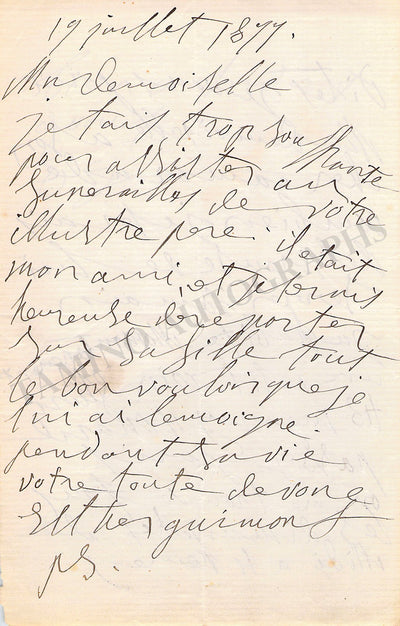 19 juillet 1877.
Mademoiselle
jetais trop souffrante
pour assister aux
funerailles de votre
illustre pere. il etait
mon ami, et je serais
heureuse de reporter
sur sa fille tout
le bon vouloir que je
lui ai temoigne.
pendant sa vie
votre toute devouee
Esther guimont
ps.
TAMINO AUTOGRAPHS